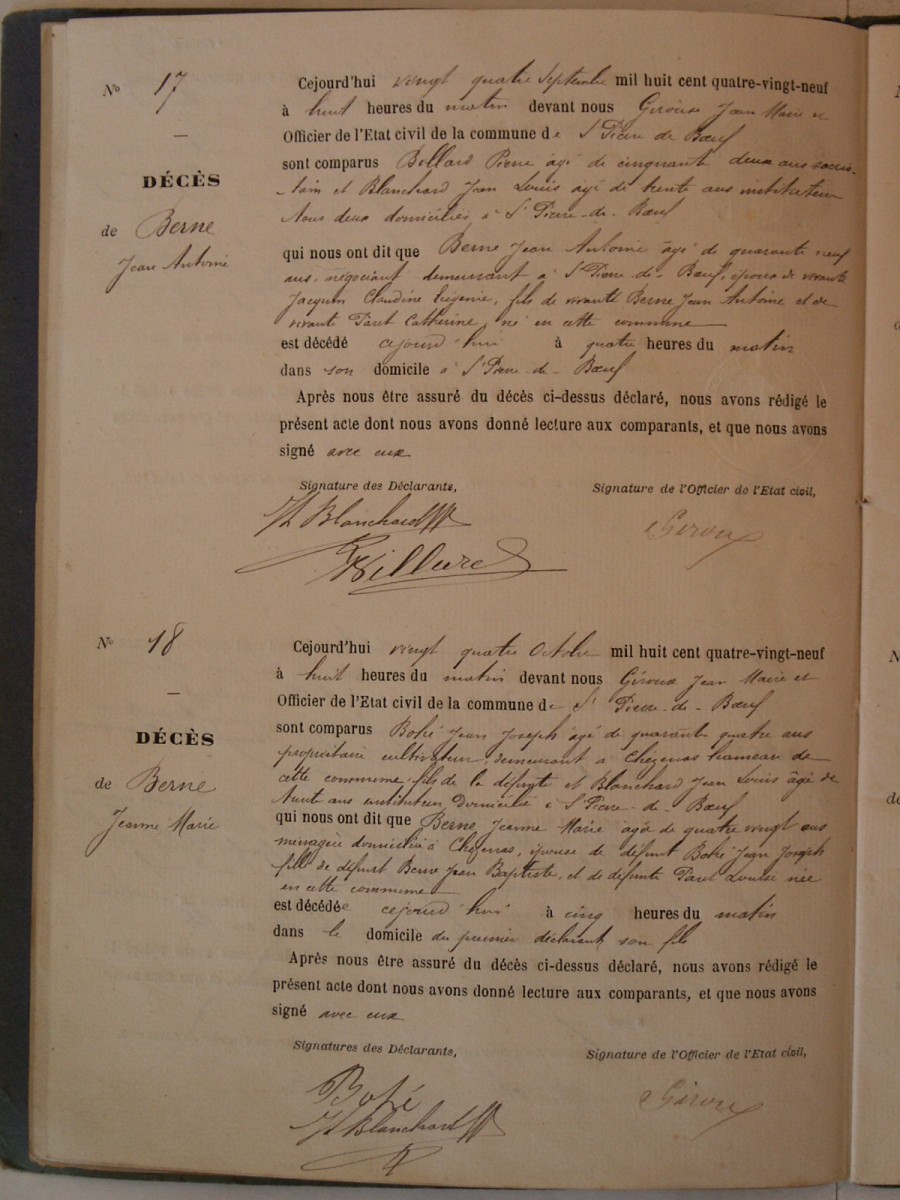 N° 17
DÉCÈS
de Berne
Jean Antoine
Cejourd'hui vingt quatre Septembre mil huit cent quatre-vingt-neuf
à huit heures du matin devant nous Giroux Jean Marie
Officier de l'Etat civil de la commune de St Pierre de Bœuf
sont comparus Pierre âgé de cinquante deux ans
et Blanchard Jean Louis âgé de trente ans instituteur
tous deux domiciliés à St Pierre-de-Bœuf
qui nous ont dit que Berne Jean Antoine âgé de quarante neuf
ans, négociant demeurant à St Pierre-de-Bœuf, époux de vivante
Jacquin Claudine Eugénie, fils de vivant Berne Jean Antoine et de
vivante Paret Catherine, né en cette commune
est décédé cejourd'hui à quatre heures du matin
dans son domicile à St Pierre-de-Bœuf
Après nous être assuré du décès ci-dessus déclaré, nous avons rédigé le
présent acte dont nous avons donné lecture aux comparants, et que nous avons
signé avec eux
Signature des Déclarants,
Signature de l'Officier de l'Etat civil,
JL Blanchard
Giroux
N° 18
DÉCÈS
de Berne
Jeanne Marie
Cejourd'hui vingt quatre Octobre mil huit cent quatre-vingt-neuf
à huit heures du matin devant nous Giroux Jean Marie
Officier de l'Etat civil de la commune de St Pierre-de-Bœuf
sont comparus Jean Joseph âgé de quarante quatre ans
propriétaire cultivateur, demeurant à Chezenas hameau de
cette commune, fils de la défunte et Blanchard Jean Louis âgé de
trente ans instituteur, domicilié à St Pierre-de-Bœuf
qui nous ont dit que Berne Jeanne Marie âgée de quatre vingt ans
ménagère domiciliée à Chezenas, épouse de défunt Jean Joseph
fille de défunt Berne Jean Baptiste, et de défunte Paret Louise née
en cette commune
est décédée cejourd'hui à cinq heures du matin
dans le domicile du premier déclarant son fils
Après nous être assuré du décès ci-dessus déclaré, nous avons rédigé le
présent acte dont nous avons donné lecture aux comparants, et que nous avons
signé avec eux
Signatures des Déclarants,
Signature de l'Officier de l'Etat civil,
JL Blanchard
Giroux